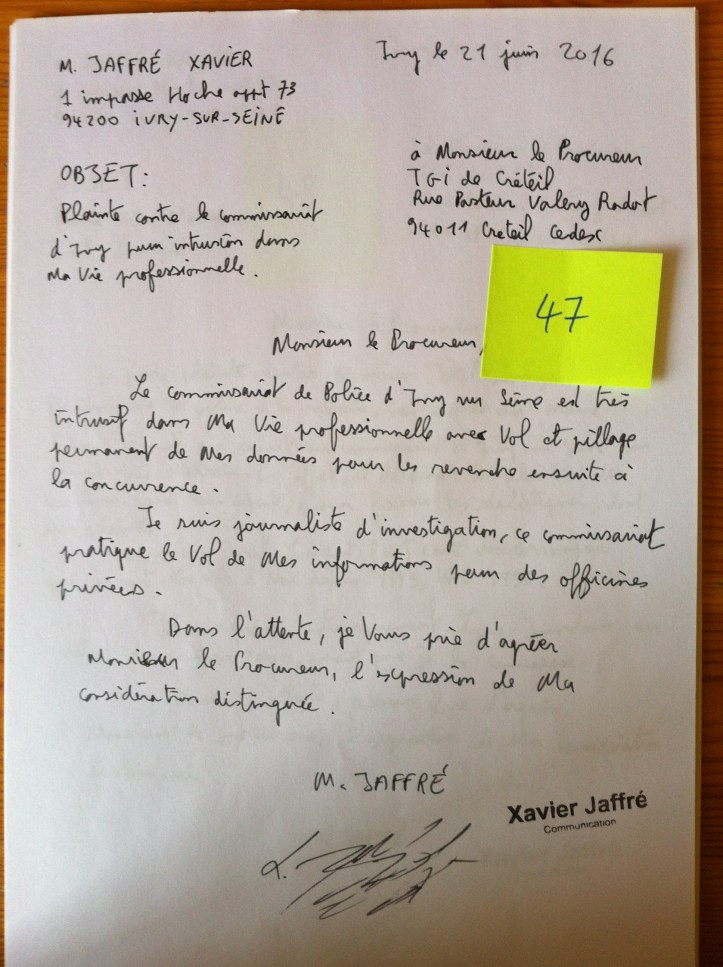 M. JAFFRÉ XAVIER
Ivry le 21 juin 2016
1 impasse Hoche appt 73
94200 IVRY-SUR-SEINE
à Monsieur le Procureur
TGI de Créteil
Rue Pasteur Valery Radot
94011 Creteil cedex
OBJET:
Plainte contre le commissariat
d'Ivry pour intrusion dans
Ma Vie professionnelle.
47
Monsieur le Procureur,
Le commissariat de Police d'Ivry sur Seine est très
intrusif dans Ma Vie professionnelle avec Vol et pillage
permanent de Mes données pour les revendre ensuite à
la concurrence.
Je suis journaliste d'investigation, ce commissariat
pratique le Vol de Mes informations pour des officines
privées.
Dans l'attente, je Vous prie d'agréer
Monsieur le Procureur, l'expression de Ma
considération distinguée.
M. JAFFRÉ
Xavier Jaffré
Communication